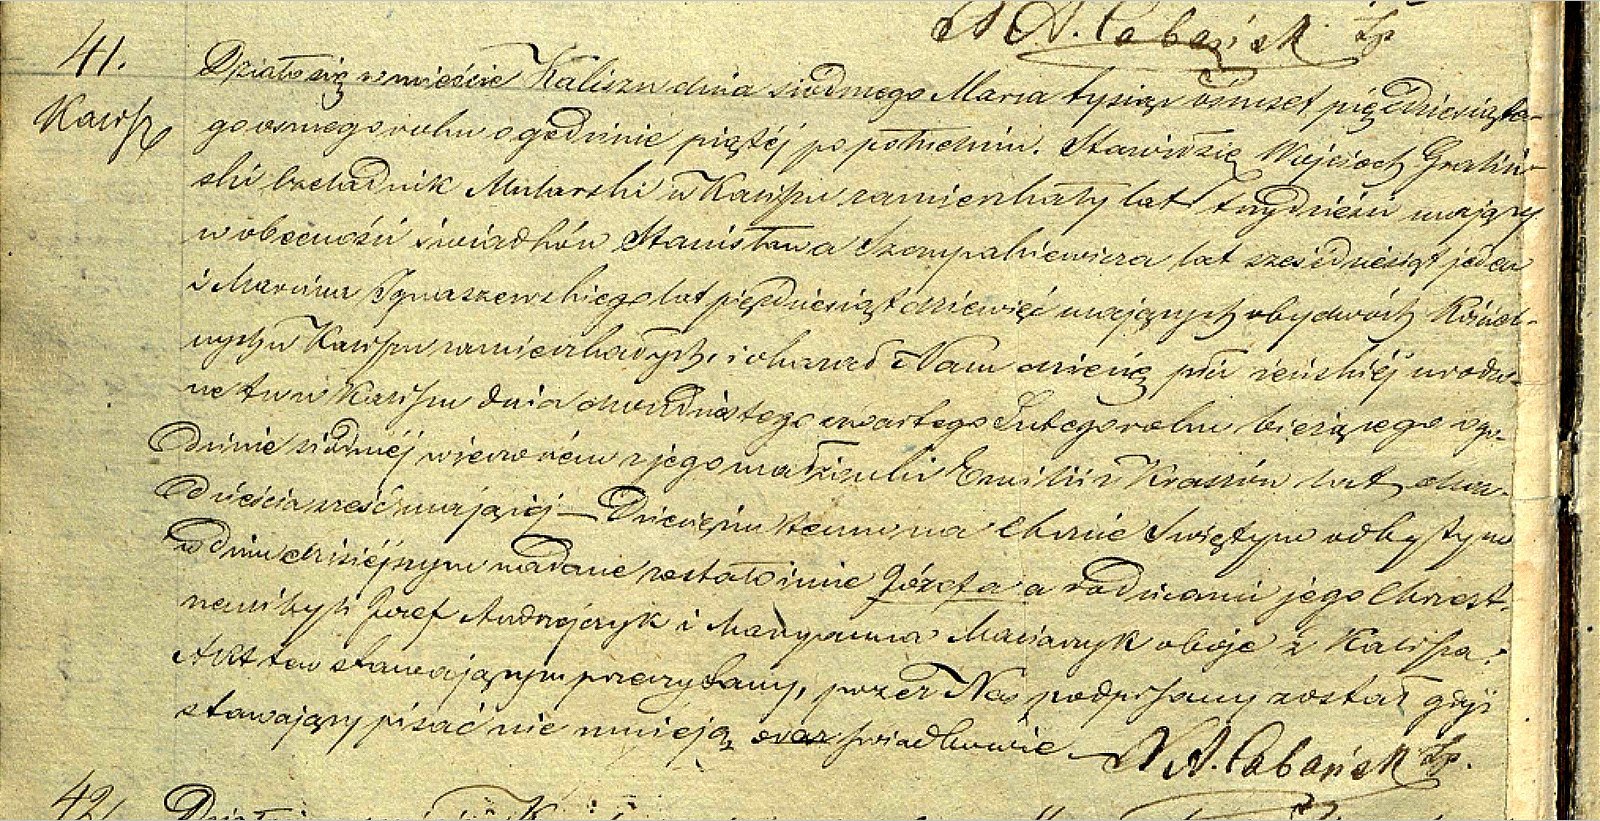 X A. Cabański Zp
41.
Kalisz
Działo się w mieście Kaliszu dnia siódmego Marca tysiąc ośmset pięćdziesiąte-
go osmego roku o godzinie piątéj po południu. Stawił się Wojciech Graliń-
ski Czeladnik Mularski w Kaliszu zamieszkały lat trzydzieści mający
w obecności świadków Stanisława Szczupakiewicza lat sześćdziesiąt jeden
i Marcina Ignaszewskiego lat pięćdziesiąt dziewięć mających obydwóch Kościel-
nych w Kaliszu zamieszkałych, i okazał Nam dziecię płci żeńskiéj urodzo-
ne tu w Kaliszu dnia dwudziestego czwartego Lutego roku bieżącego o go-
dzinie siódméj wieczorem z jego małżonki Emilii z Krassów lat dwa-
dzieścia sześć mającéj — Dziecięciu temu na Chrzcie Świętym odbytym
w dniu dzisiéjszym nadane zostało imie Józefa a rodzicami jego Chrzest-
nemi byli Józef Andrzejczyk i Maryanna Maciaszyk oboje z Kalisza.
Akt ten stawającym przeczytany, przez Nas podpisany został gdyż
stawający pisać nie umieją oraz świadkowie — X A. Cabański Zp.
42.